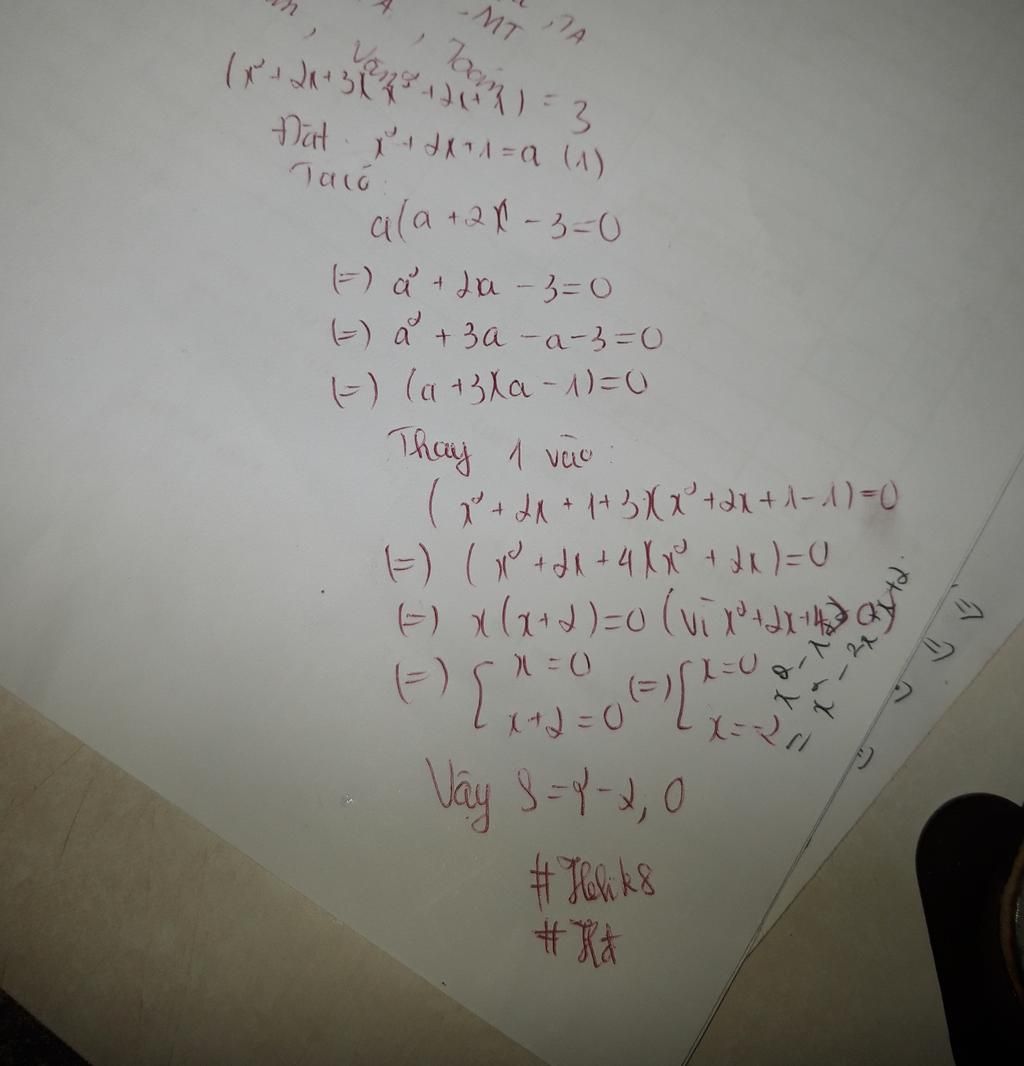 -MT
Văn, Toán
(x² + 2x + 3)(x² + 2x + 1) = 3
Đặt x² + 2x + 1 = a (1)
Ta có:
a(a + 2) - 3 = 0
(=) a² + 2a - 3 = 0
(=) a² + 3a - a - 3 = 0
(=) (a + 3)(a - 1) = 0
Thay 1 vào:
(x² + 2x + 1 + 3)(x² + 2x + 1 - 1) = 0
(=) (x² + 2x + 4)(x² + 2x) = 0
(=) x(x + 2) = 0 (vì x² + 2x + 4 > 0)
(=) [ x = 0 (=) [ x = 0
x + 2 = 0 x = -2
Vậy S = { -2, 0